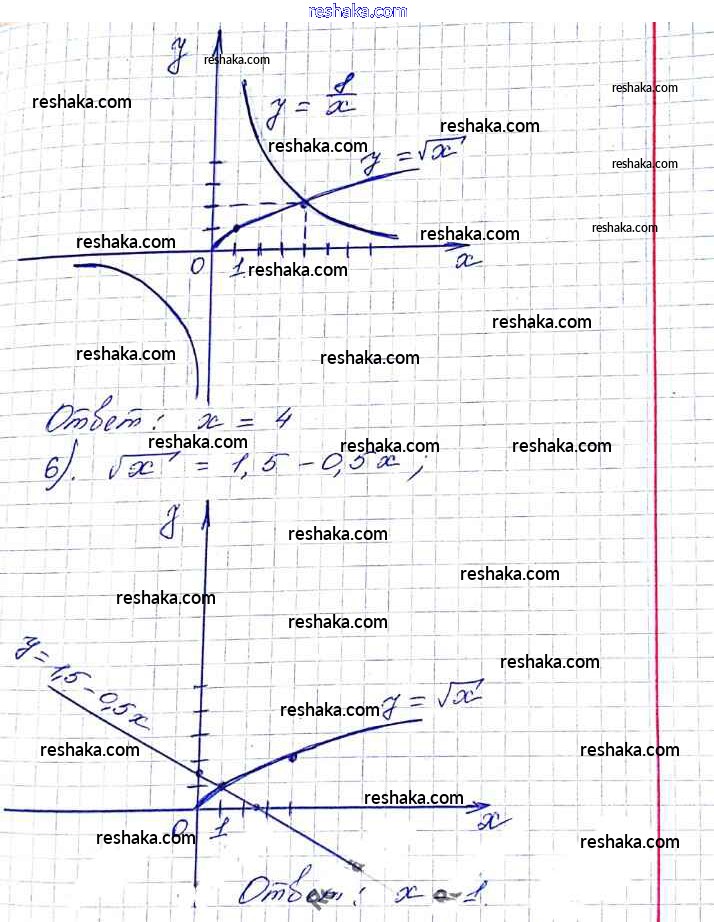 reshaka.com
y
reshaka.com
reshaka.com
reshaka.com
y = 8/x
reshaka.com
reshaka.com
y = √x
reshaka.com
reshaka.com
reshaka.com
reshaka.com
0 1 reshaka.com x
reshaka.com
reshaka.com
reshaka.com
Ответ: x = 4
reshaka.com
reshaka.com
reshaka.com
б). √x = 1,5 - 0,5x;
y
reshaka.com
reshaka.com
reshaka.com
reshaka.com
y = 1,5 - 0,5x
reshaka.com
reshaka.com
y = √x
reshaka.com
reshaka.com
reshaka.com
0 1 x
reshaka.com
reshaka.com
Ответ: x = 1